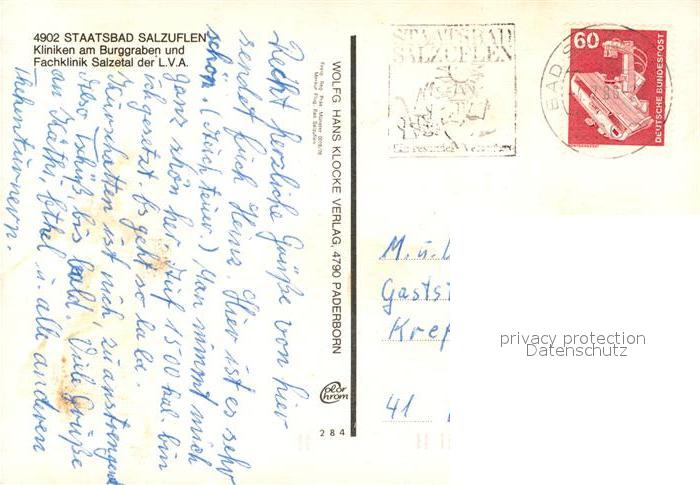 4902 STAATSBAD SALZUFLEN
Kliniken am Burggraben und
Fachklinik Salzetal der L.V.A.
Recht herzliche Grüße von hier
sendet Euch Heinz. Hier ist es sehr
schön. (Auch teuer.) Man nimmt mich
ganz schön her. Auf 1500 kal. bin
ich gesetzt. Es geht so bald.
ist nich zu anstrengend
Also Tschüß bis bald. Viele Grüße
an Ethel u. alle anderen
WOLFG. HANS KLOCKE VERLAG, 4790 PADERBORN
Color
Chrom
284
STAATSBAD
SALZUFLEN
60
DEUTSCHE BUNDESPOST
BAD S
M. u.
Gast
Kref
41
privacy protection
Datenschutz